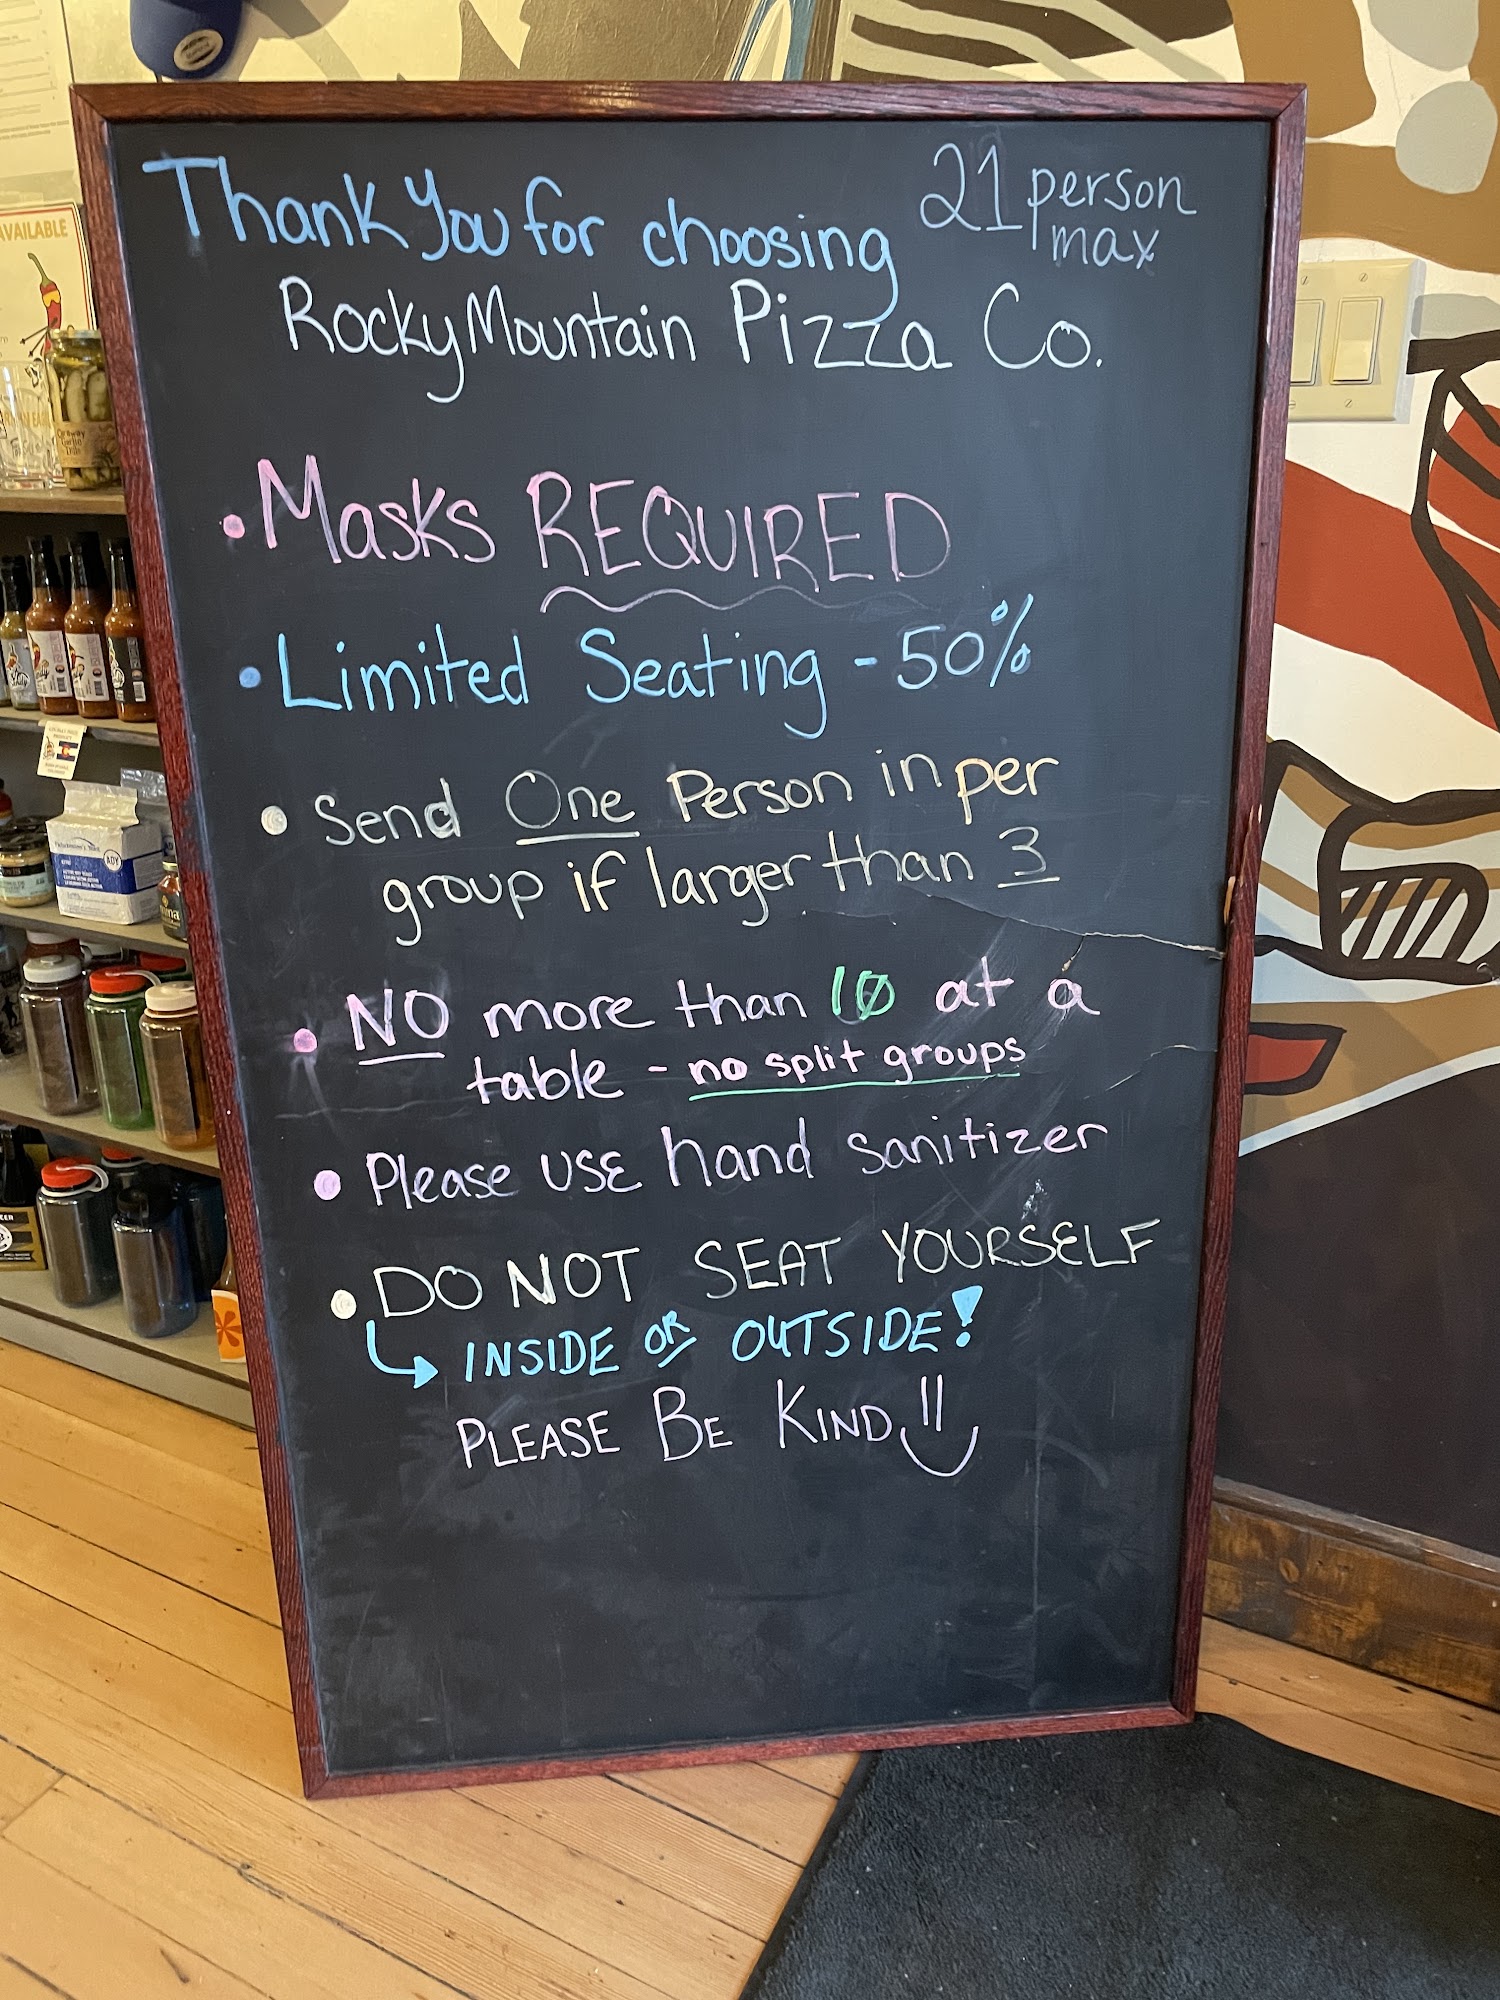 Thank You for choosing
21 person
max
Rocky Mountain Pizza Co.
• Masks REQUIRED
• Limited Seating - 50%
• Send One Person in per
group if larger than 3
• NO more than 10 at a
table - no split groups
• Please USE hand sanitizer
• DO NOT SEAT YOURSELF
↳ INSIDE OR OUTSIDE!
PLEASE BE KIND
AVAILABLE
ADY